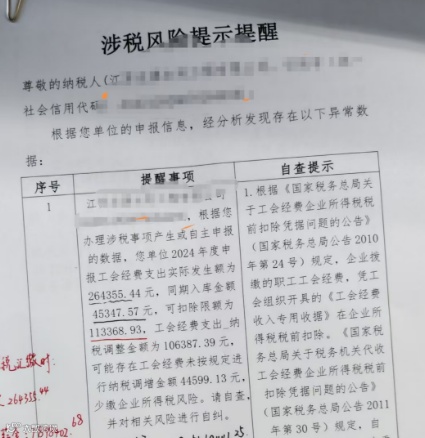 涉税风险提示提醒
尊敬的纳税人(江
社会信用代码
根据您单位的申报信息，经分析发现存在以下异常数
据：
序号
提醒事项
自查提示
1
江
公司
，根据您
办理涉税事项产生或自主申报
的数据，您单位2024年度申
报工会经费支出实际发生额为
264355.44元，同期入库金额
45347.57元，可扣除限额为
113368.93，工会经费支出_纳
税调整金额为106387.39元，
可能存在工会经费未按规定进
行纳税调增金额44599.13元，
少缴企业所得税风险。请自查，
并对相关风险进行自纠。
1.根据《国家税务总局关
于工会经费企业所得税税
前扣除凭据问题的公告》
（国家税务总局公告2010
年第24号）规定，企业拨
缴的职工工会经费，凭工
会组织开具的《工会经费
收入专用收据》在企业所
得税税前扣除。《国家税
务总局关于税务机关代收
工会经费企业所得税税前
扣除凭据问题的公告》
（国家税务总局公告2011
年第30号）规定，自
264355.44
68